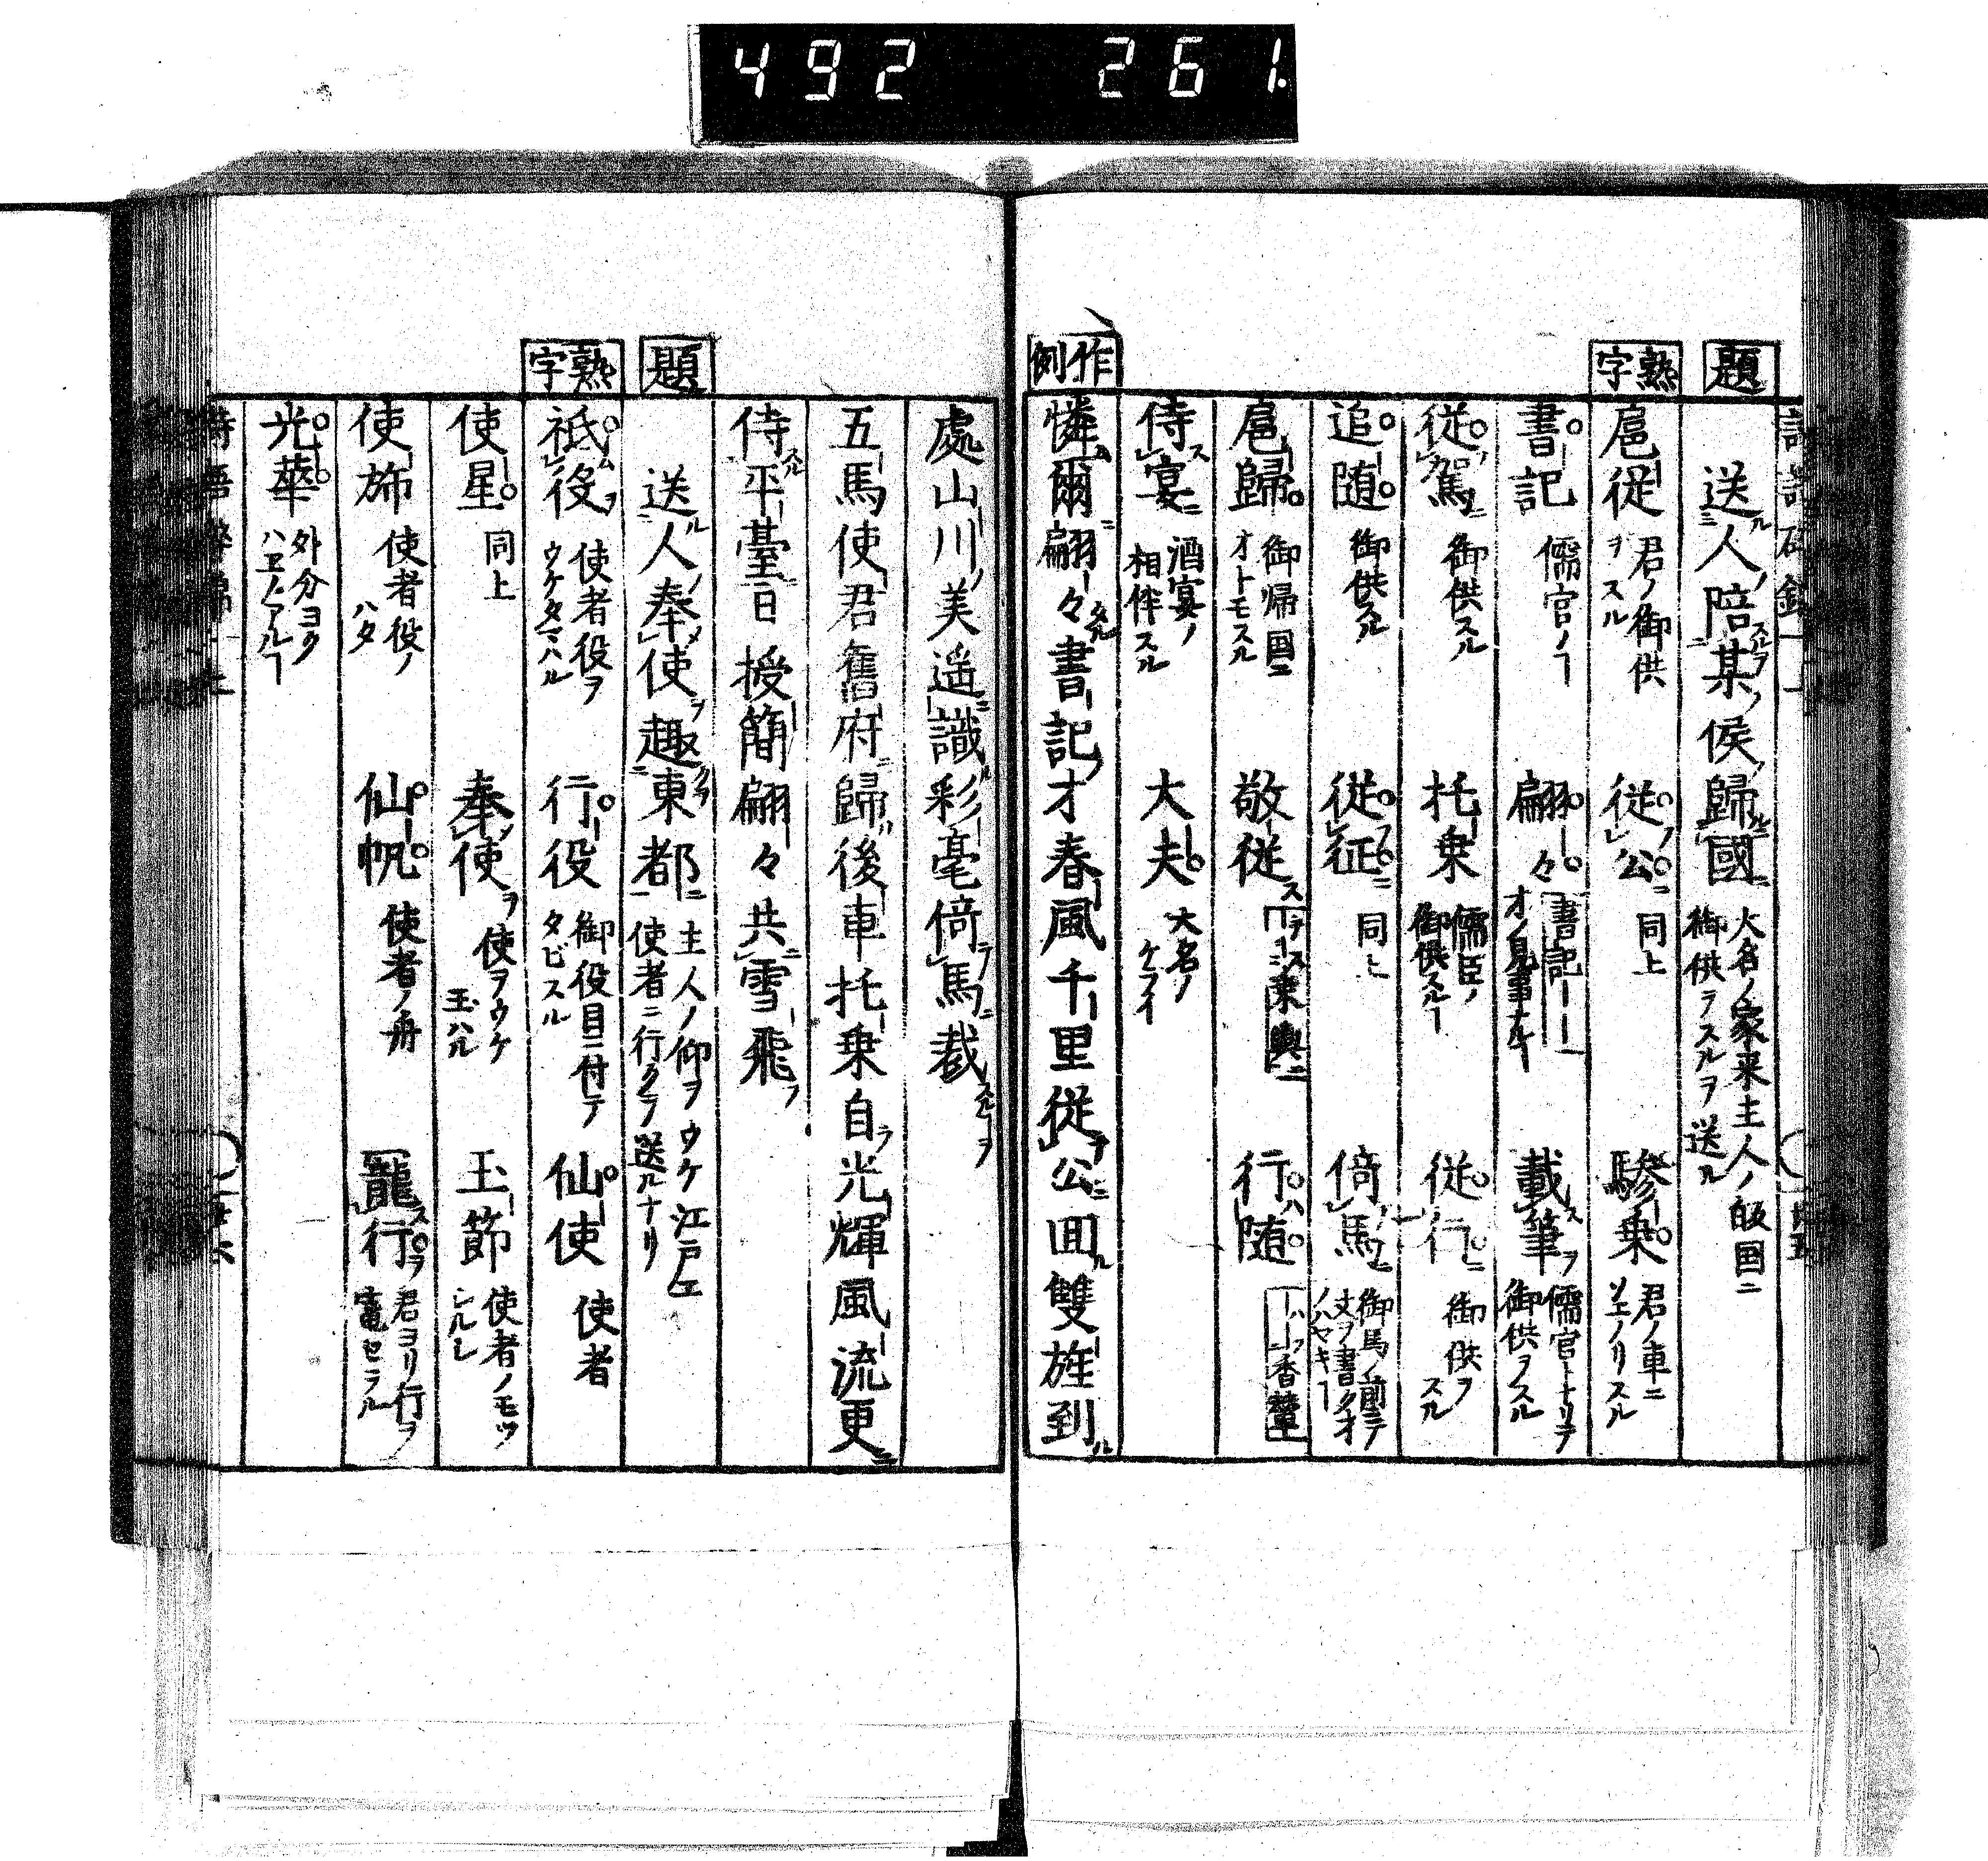 492 261.
題
送人陪某侯歸國 大名ノ家来主人ノ皈国ニ御供ヲスルヲ送ル
熟字
扈従 君ノ御供ヲスル 従公 同上 驂乗 君ノ車ニソエノリスル
書記 儒官ノヿ 翩々 書記―― 才ノ見事ナルヿ 載筆 儒官トナリテ御供ヲスル
従駕 御供スル 托乗 儒臣ノ御供スルヿ 従行 御供ヲスル
追随 御供スル 従征 同上 倚馬 御馬ノ前ニテ文ヲ書クオノハヤキヿ
扈歸 御帰国ニオトモスル 敬従 乗輿 行随 香輦
侍宴 酒宴ノ相伴スル 大夫 大名ノケライ
作例
憐爾翩々書記才春風千里従公回雙旌到
處山川美遥識彩毫倚馬裁
五馬使君舊府歸後車托乗自光輝風流更
侍平臺日授簡翩々共雪飛
題
送人奉使趣東都 主人ノ仰ヲウケ江戸エ使者ニ行クヲ送ルナリ
熟字
祗役 使者役ヲウケタマハル 行役 御役目ニ付テタビスル 仙使 使者
使星 同上 奉使 使ヲウケ玉ハル 玉節 使者ノモツシルシ
使斾 使者役ノハタ 仙帆 使者ノ舟 寵行 君ヨリ行ヲ寵セラル
光華 外分ヨクハヱノアルヿ